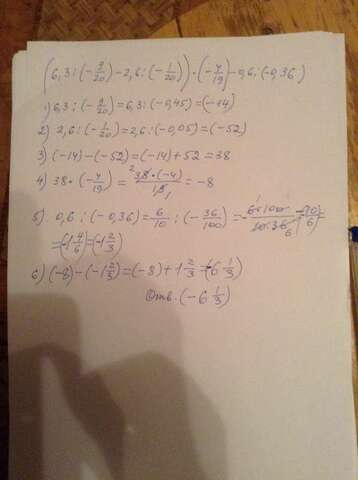 (6,3:(-9/20)-2,6:(-1/20))·(-4/19)-0,6:(-0,36)
1) 6,3:(-9/20)=6,3:(-0,45)=(-14)
2) 2,6:(-1/20)=2,6:(-0,05)=(-52)
3) (-14)-(-52)=(-14)+52=38
4) 38·(-4/19)=38·(-4)/19=-8
5) 0,6:(-0,36)=6/10:(-36/100)=6·100/10·36=-10/6=
=(-1 4/6)=(-1 2/3)
6) (-8)-(-1 2/3)=(-8)+1 2/3=(-6 1/3)
Отв.(-6 1/3)